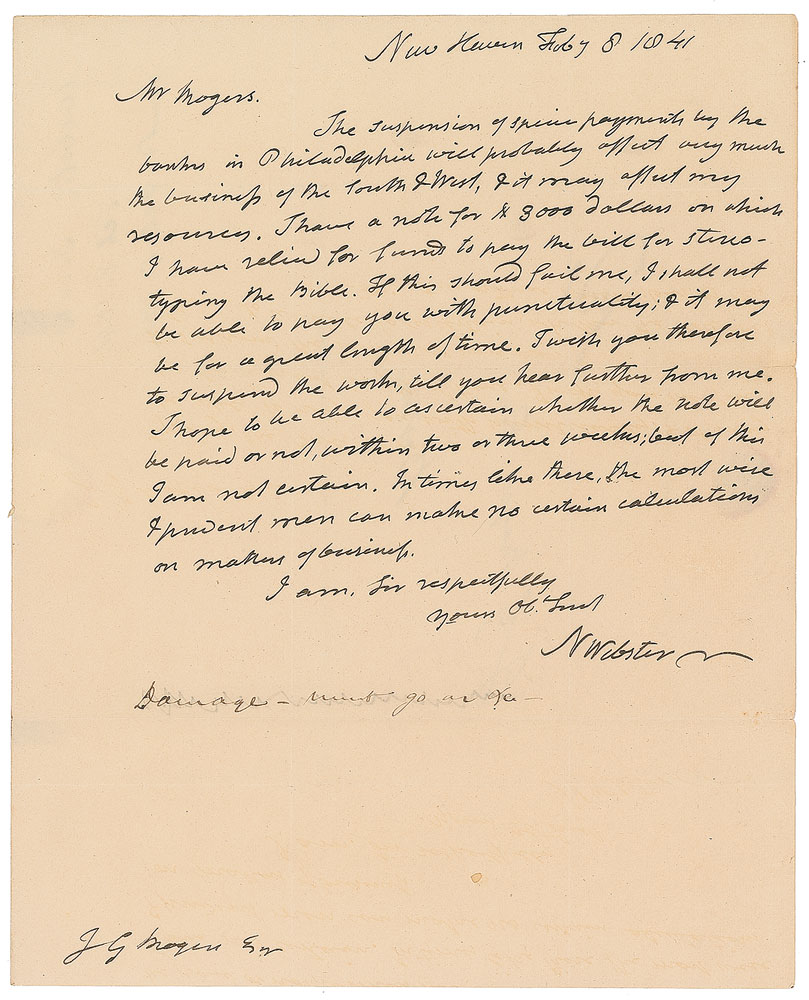 New Haven Feby 8 1841
Mr Mogers.
The suspension of specie payments by the
banks in Philadelphia will probably affect very much
the business of the South & West, & it may affect my
resources. I have a note for $ 3000 dollars on which
I have relied for funds to pay the bill for stereo-
typing the Bible. If this should fail me, I shall not
be able to pay you with punctuality; & it may
be for a great length of time. I wish you therefore
to suspend the work, till you hear further from me.
I hope to be able to ascertain whether the note will
be paid or not, within two or three weeks; but of this
I am not certain. In times like these, the most wise
& prudent men can make no certain calculations
on matters of business.
I am, Sir respectfully
yours Obt Servt
N Webster
Damage — must go on &c —
J G Mogers Esqr